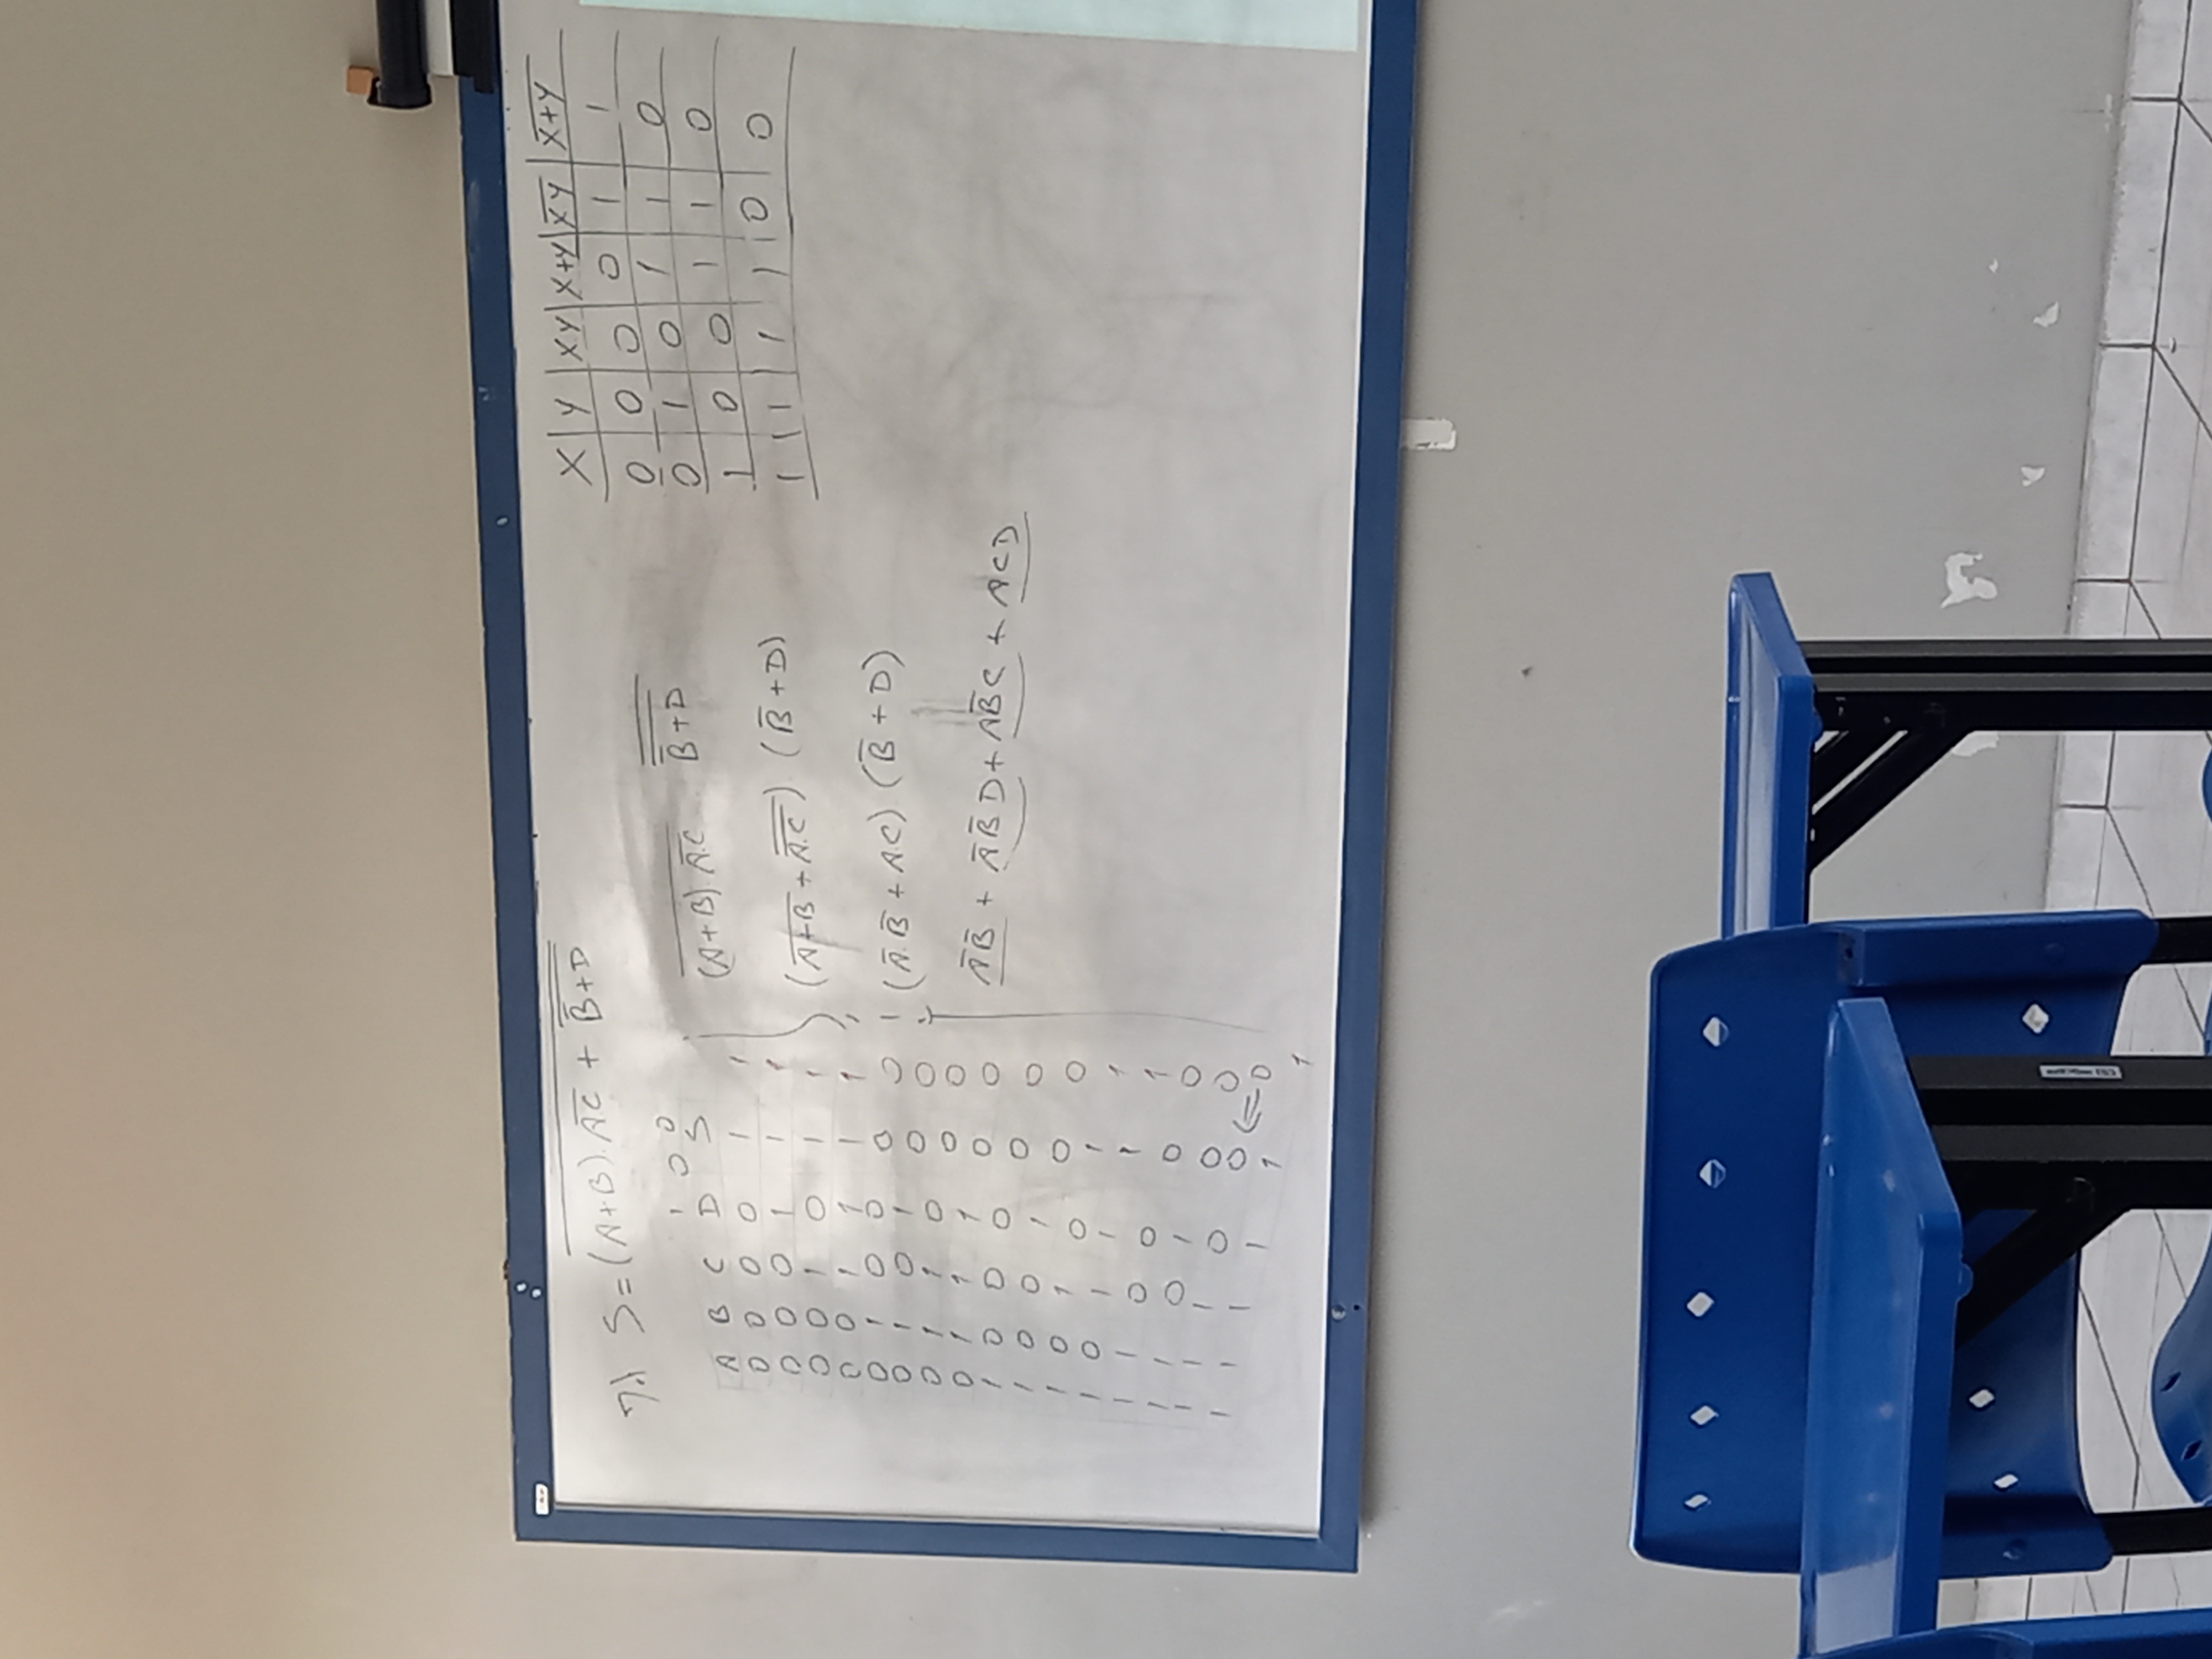 7.) S = \overline{(A+B).\overline{AC} + \overline{\overline{B}+D}}
1 0 0
A B C D S
0 0 0 0 1 1
0 0 0 1 1 1
0 0 1 0 1 1
0 0 1 1 1 1
0 1 0 0 0 0
0 1 0 1 0 0
0 1 1 0 0 0
0 1 1 1 0 0
1 0 0 0 0 0
1 0 0 1 0 0
1 0 1 0 1 1
1 0 1 1 1 1
1 1 0 0 0 0
1 1 0 1 0 0
1 1 1 0 0 ⇐ 0
1 1 1 1 1 1
\overline{(A+B).\overline{A.C}} \overline{\overline{\overline{B}+D}}
(\overline{A+B} + \overline{\overline{A.C}}).(\overline{B}+D)
(\overline{A}.\overline{B} + A.C).(\overline{B}+D)
\overline{A}\overline{B} + \overline{A}\overline{B}D + A\overline{B}C + ACD
X Y XY X+Y \overline{XY} \overline{X+Y}
0 0 0 0 1 1
0 1 0 1 1 0
1 0 0 1 1 0
1 1 1 1 0 0